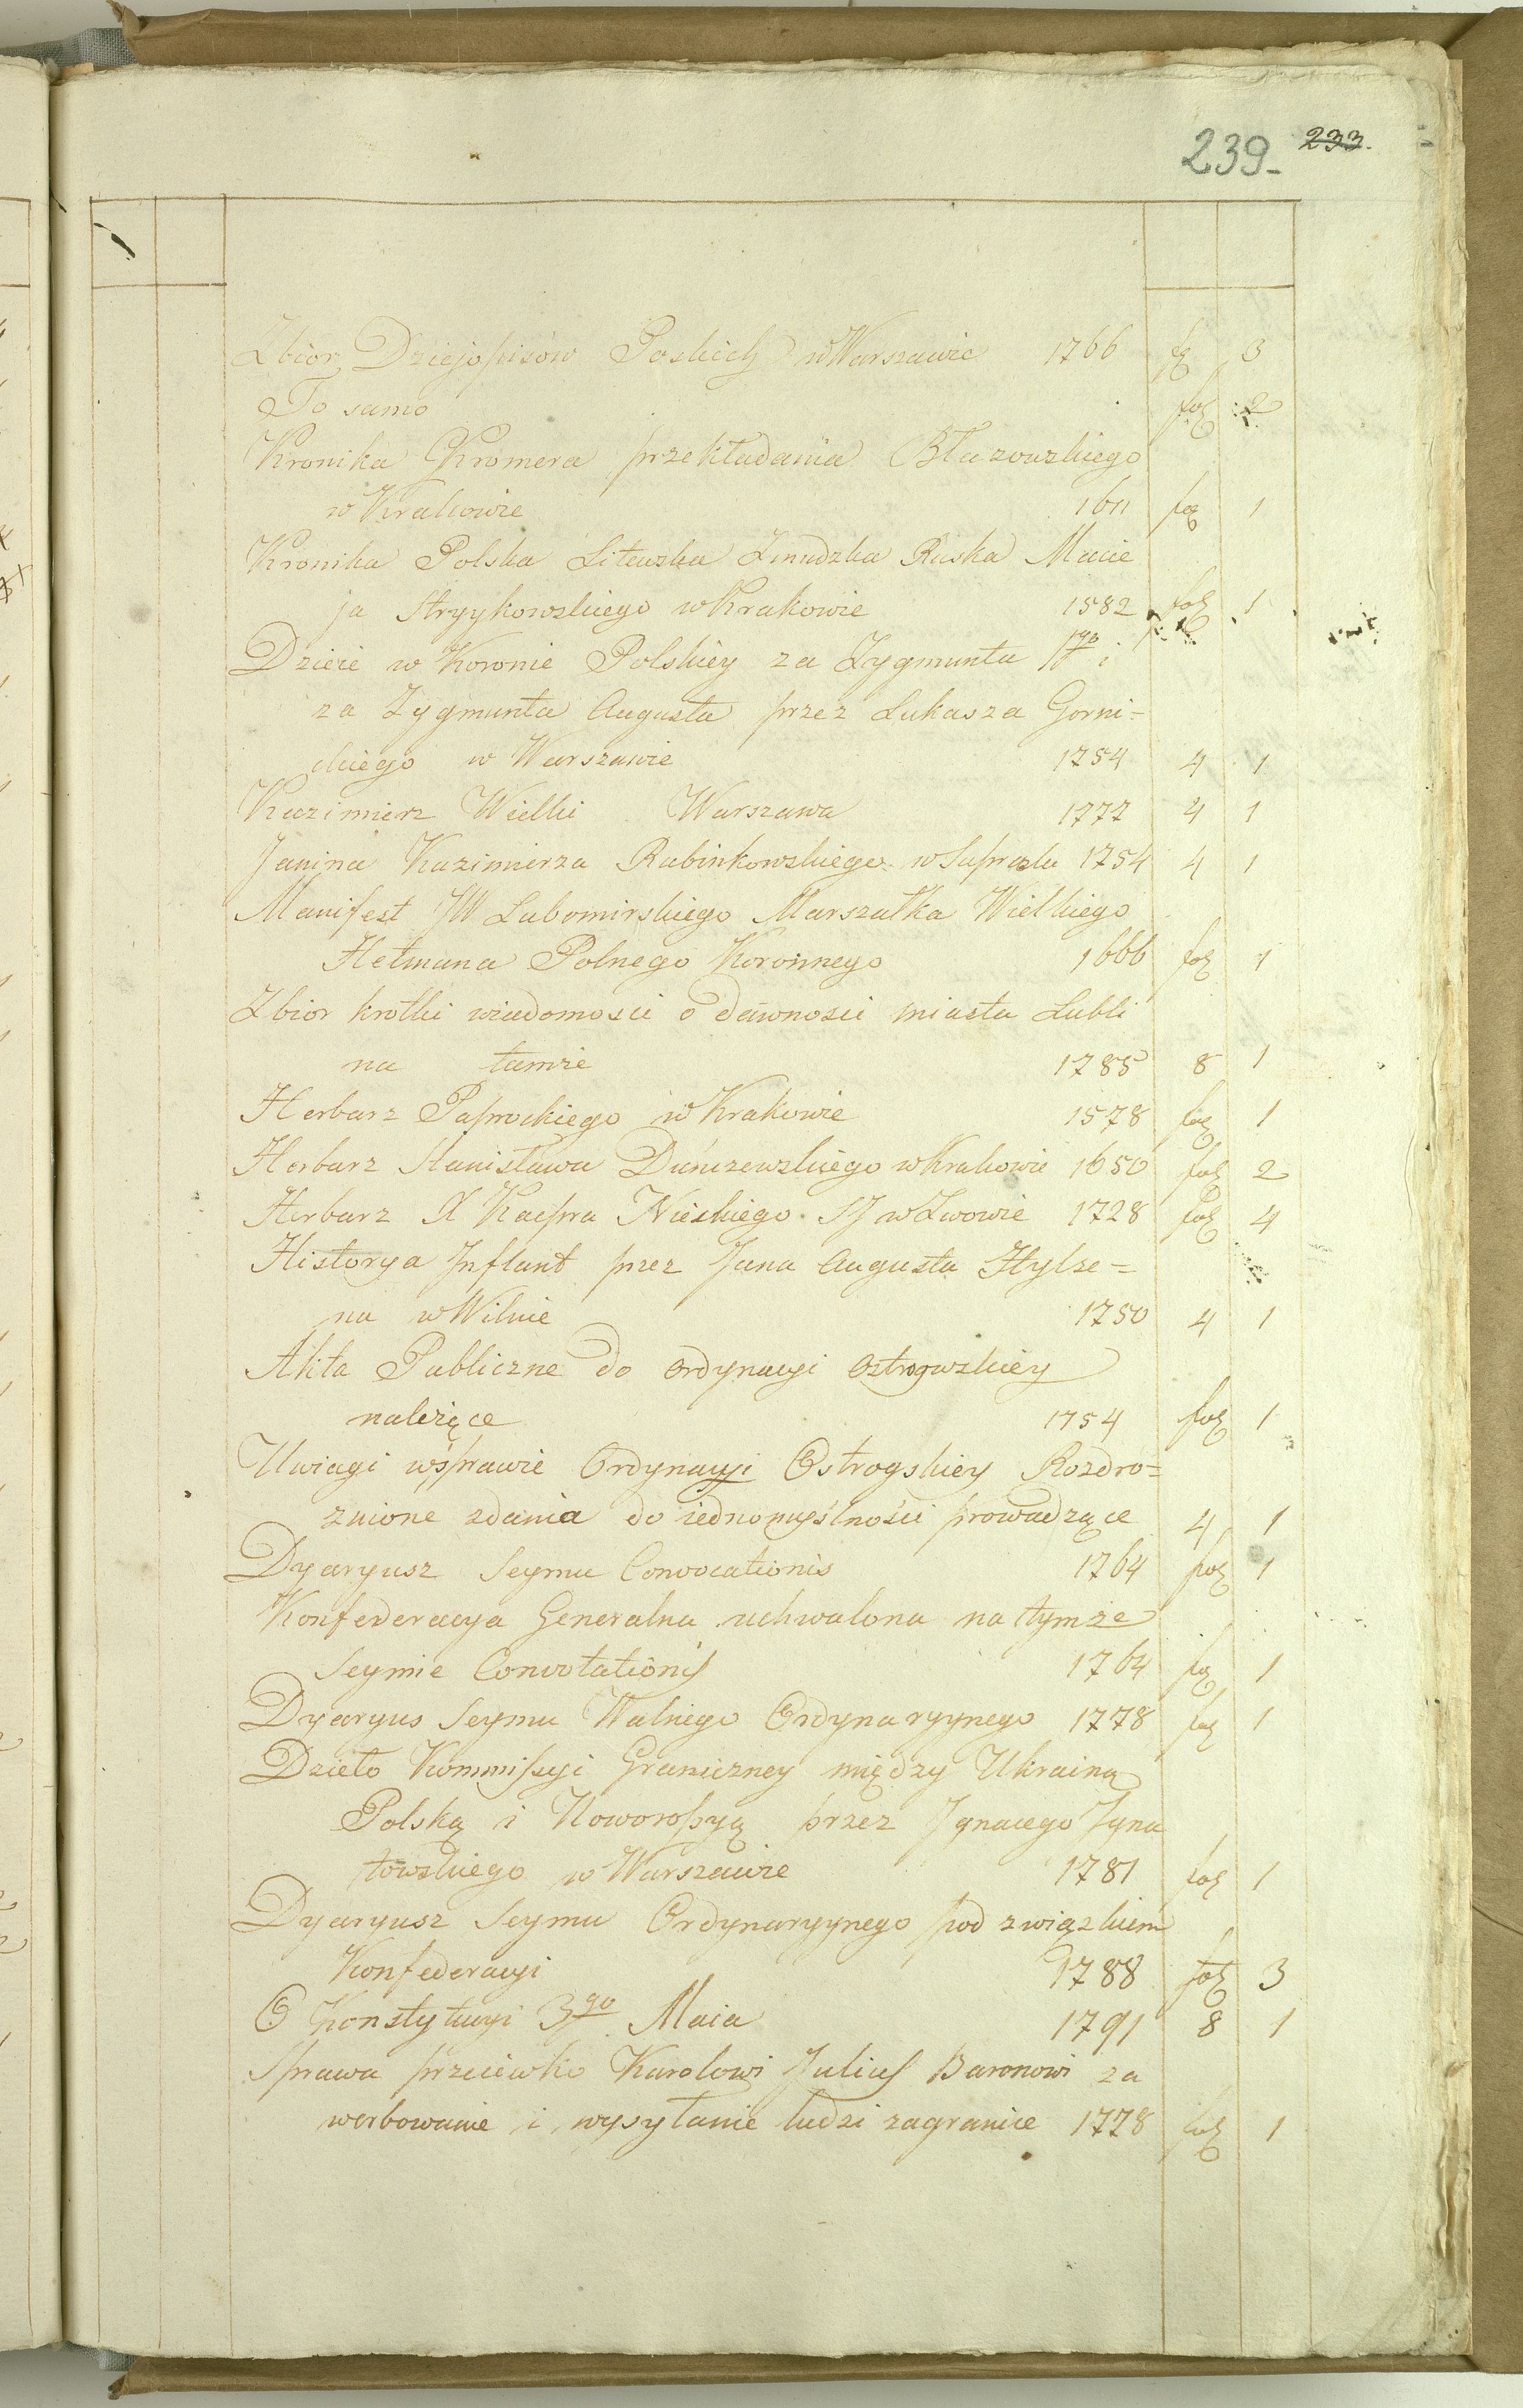 239- 233.
Zbior Dziejopisow Poskich w Warszawie 1766 fol 3
To samo fol 2
Kronika Kromera przekładania Błazowzkiego
w Krakowie 1611 fol 1
Kronika Polska Litewska Zmudzka Ruska Macie
ja Stryykowskiego w Krakowie 1582 fol 1
Dzieie w Koronie Polskiey za Zygmunta 1go i
za Zygmunta Augusta przez Lukasza Gorni=
ckiego w Warszawie 1754 4 1
Kazimierz Wielki Warszawa 1777 4 1
Janina Kazimierza Rubinkowskiego w Supraslu 1754 4 1
Manifest JW Lubomirskiego Marszałka Wielkiego
Hetmana Polnego Koronnego 1666 fol 1
Zbior krotki wiadomosci o dawnosci miasta Lubli
na tamze 1785 8 1
Herbarz Paprockiego w Krakowie 1578 fol 1
Herbarz Stanisława Dunczewskiego w Krakowie 1650 fol 2
Herbarz X Kacpra Nieskiego SJ w Lwowie 1728 fol 4
Historya Inflant przez Jana Augusta Hylze=
na w Wilnie 1750 4 1
Akta Publiczne do ordynacyi ostrogwskiey
należące 1754 fol 1
Uwagi wsprawie Ordynacyi Ostrogskiey Rozdro=
znione zdania do iednomyślności prowadzące 4 1
Dyaryusz Seymu Convocationis 1764 fol 1
Konfederacya Generalna uchwalona na tymże
Seymie Convotationis 1764 fol 1
Dyaryus Seymu Walnego Ordynaryynego 1778 fol 1
Dzieło Kommissyi Graniczney między Ukrainą
Polską i Noworossyą przez Jgnacego Jgna
towskiego w Warszawie 1781 fol 1
Dyaryusz Seymu Ordynaryynego pod związkiem
Konfederacyi 1788 fol 3
O Konstytucyi 3go Maia 1791 8 1
Sprawa przeciwko Karolowi Julius Baronowi za
werbowanie i wysyłanie ludzi zagranice 1778 fol 1